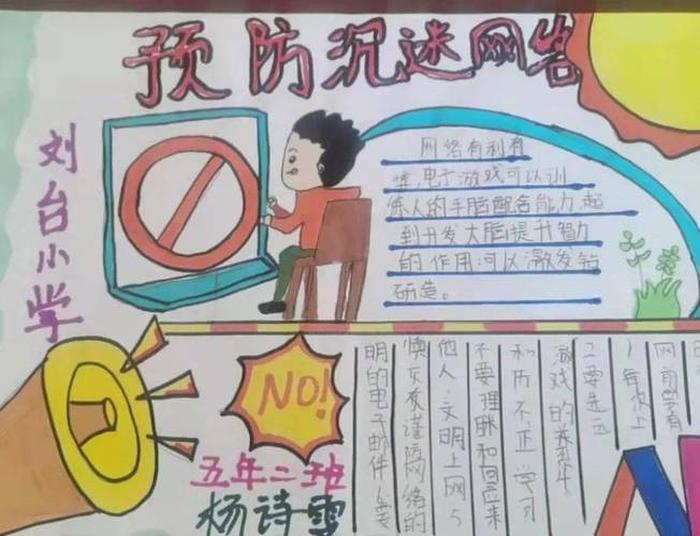 预防沉迷网络
刘台小学
网络有利有
电子游戏可以训
练人的手脑配合能力,起
到开发大脑提升智力
的作用可以激发钻
研造。
网前学有
1年次上
2要选
游戏的
和历不正学习
不要理睬和回应来
他人文明上网5
慎重网络的
明的电子邮件
NO!
五年二班
杨诗雪